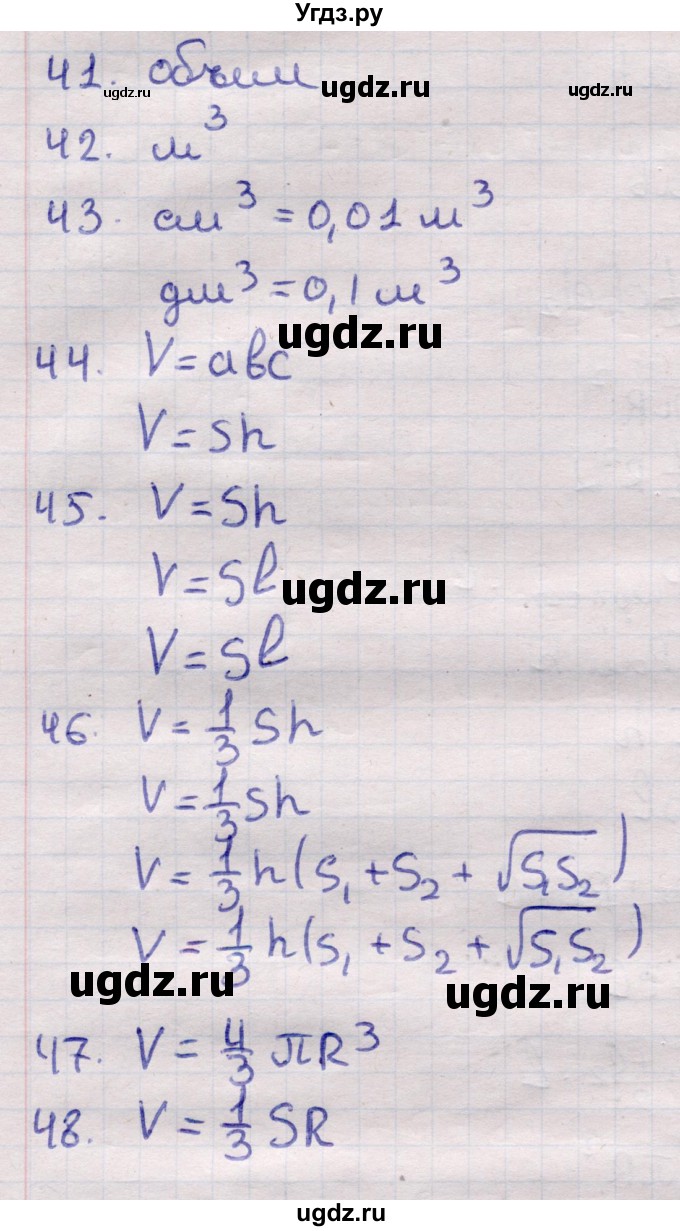 Угдз.ру
41. объем
ugdz.ru ugdz.ru ugdz.ru
42. м³
43. см³ = 0,01 м³
дм³ = 0,1 м³
ugdz.ru
44. V = abc
V = Sh
45. V = Sh
V = Sl
ugdz.ru
V = Sl
46. V = 1/3 Sh
V = 1/3 Sh
V = 1/3 h(S₁ + S₂ + √S₁S₂)
V = 1/3 h(S₁ + S₂ + √S₁S₂)
ugdz.ru ugdz.ru
47. V = 4/3 πR³
48. V = 1/3 SR
ugdz.ru